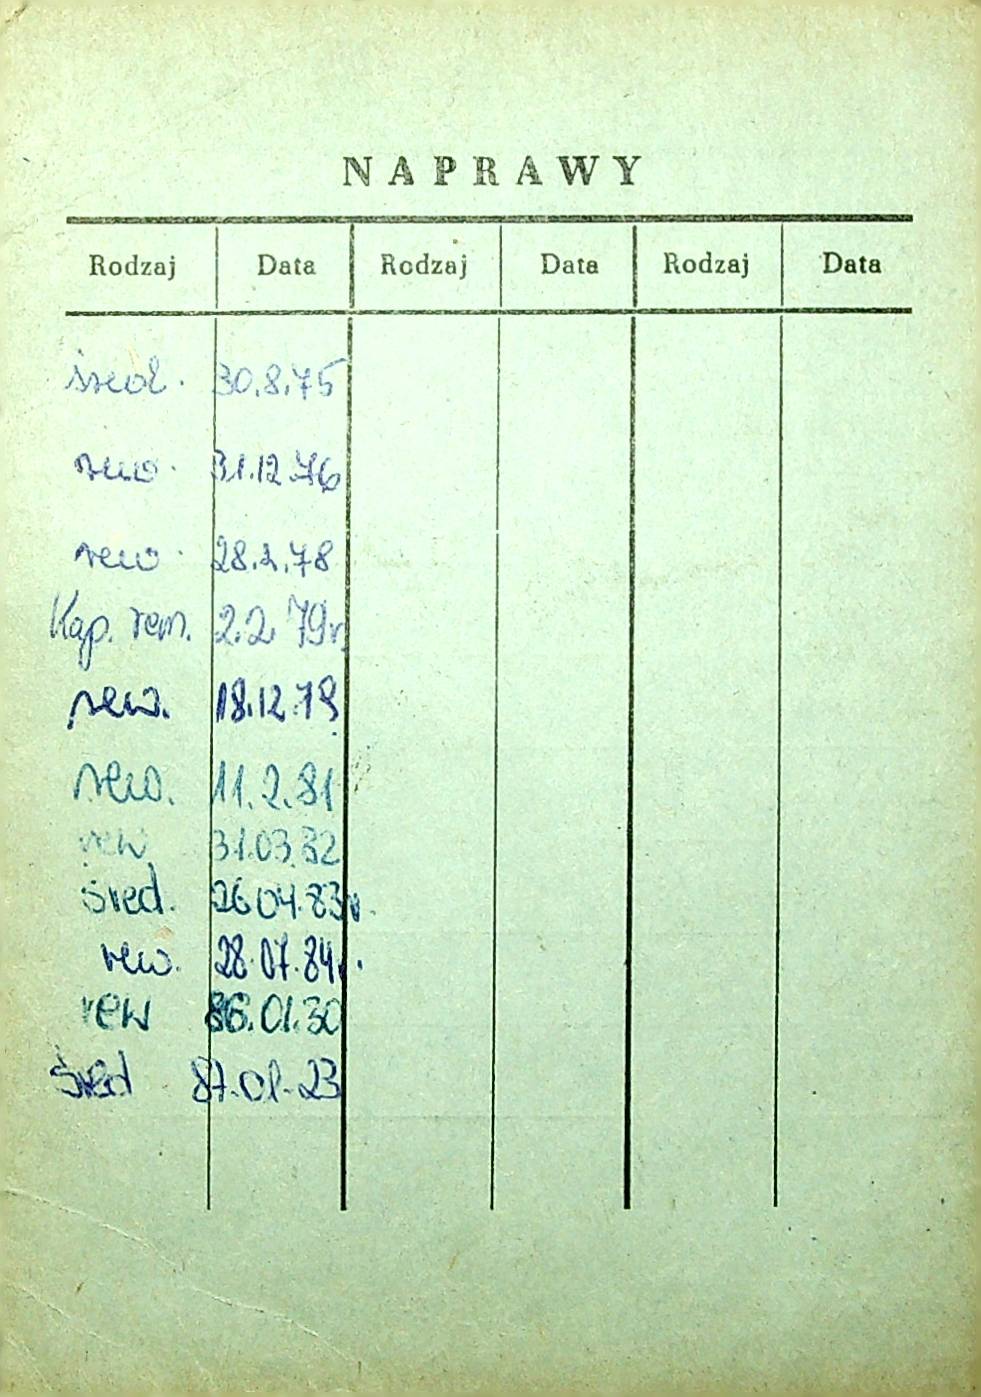 NAPRAWY
Rodzaj Data Rodzaj Data Rodzaj Data
śred. 30.8.75
rew. 31.12.76
rew. 28.2.78
Kap. rem. 2.2.79r.
rew. 18.12.79
rew. 11.2.81
rew 31.03.82
śred. 26.04.83r.
rew. 28.07.84r.
rew 86.01.30
śred 87.01.23